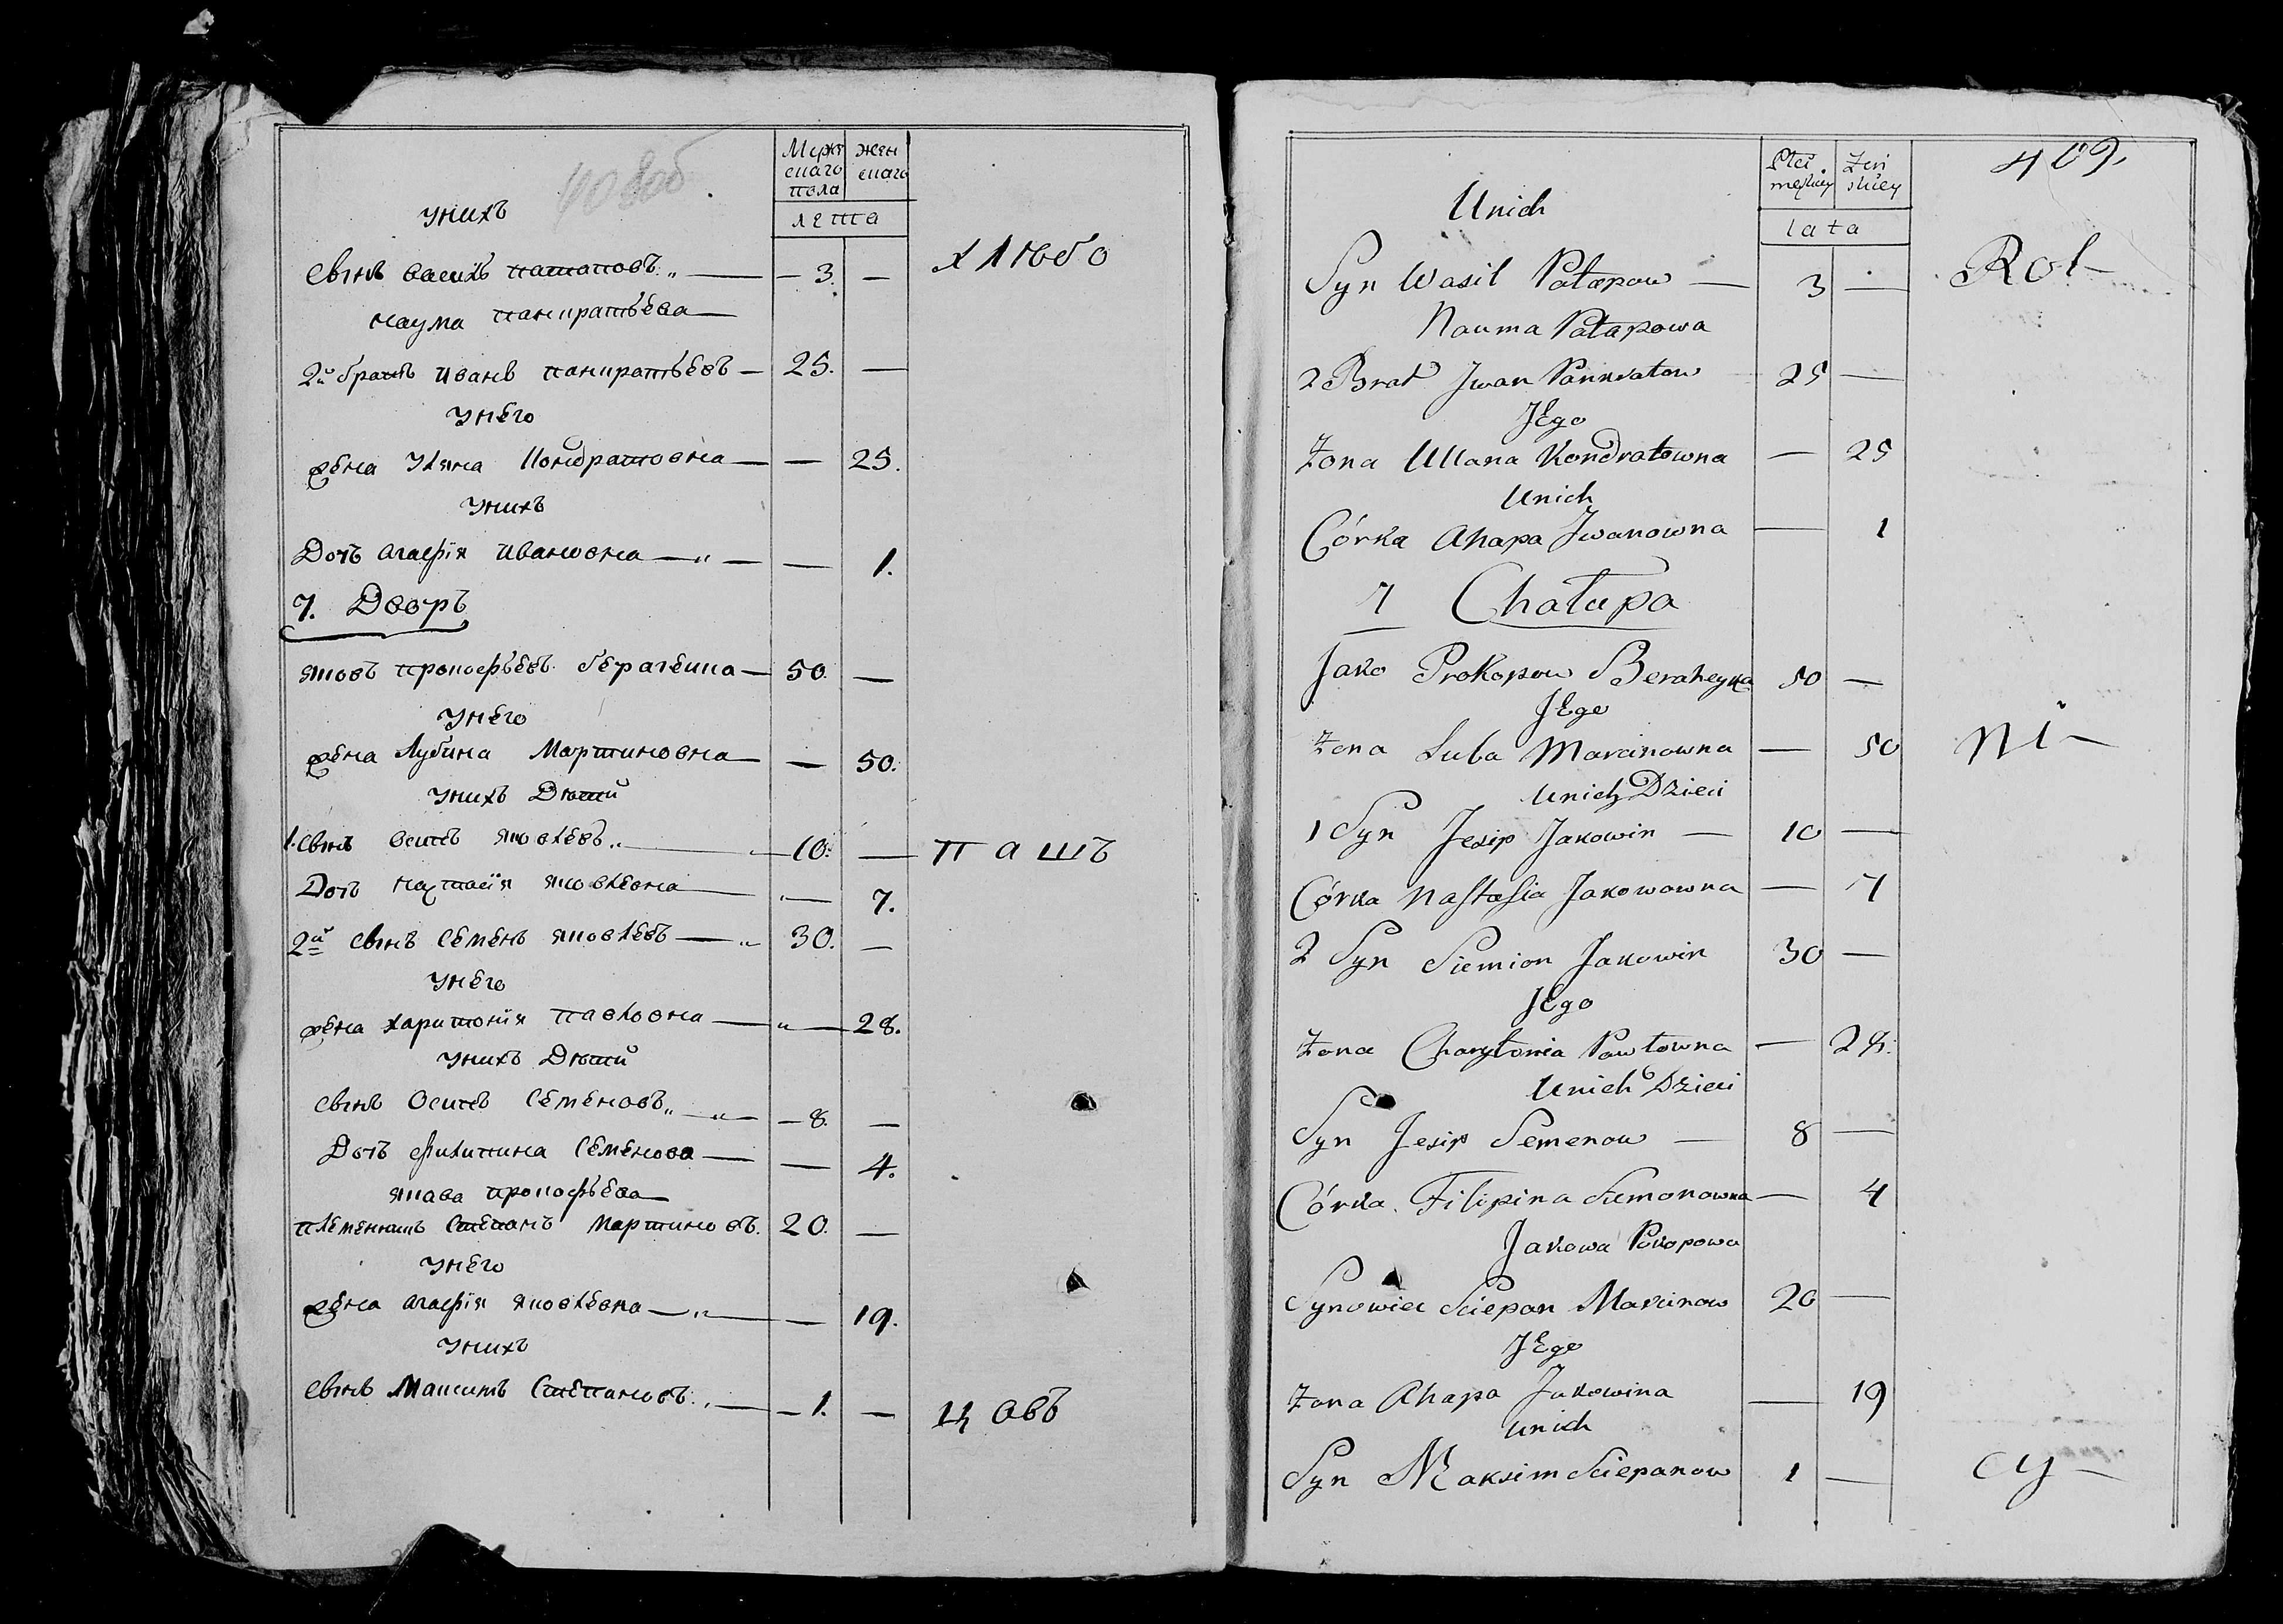 408об
Мужескаго пола
женскаго
лета
унихъ
сынъ василъ патаповъ — 3. —
хлѣбо
наума панкратьева
2й братъ иванъ панкратьевъ — 25. —
унего
жена Уляна Кондратовна — 25.
унихъ
Дочъ агафiя ивановна — 1.
7. Дворъ
яковъ прокофьевъ берагейка — 50. —
унего
жена Лубина Мартиновна — 50.
унихъ Дѣти
1. сынъ осипъ яковлевъ — 10. —
пашъ
Дочъ настасiя яковлевна — 7.
2й сынъ Семенъ яковлевъ — 30. —
унего
жена харитонiя павловна — 28.
унихъ Дѣти
сынъ Осипъ Семеновъ — 8. —
Дочъ филипина Семенова — 4.
якава прокофьева
племенникъ Степанъ Мартиновъ. 20. —
унего
жена агафiя яковлевна — 19.
унихъ
сынъ Максимъ Степановъ — 1. —
цовъ
409.
Płci męzkiey
Żeńskiey
lata
Unich
Syn Wasil Patapow — 3 —
Rol-
Nauma Patapowa
2 Brat Jwan Pankratow 25 —
JEgo
Żona Ullana Kondratowna — 25
Unich
Córka Ahapa Jwanowna — 1
7 Chałupa
Jako Prokopow Beraheyka 50 —
JEgo
Żona Luba Marcinowna — 50
ni-
Unich Dzieci
1 Syn Jesip Jakowin — 10 —
Córka Nastasia Jakowowna — 7
2 Syn Siemion Jakowin 30 —
JEgo
Żona Charytonia Pawłowna — 28.
Unich Dzieci
Syn Jesip Semenow — 8 —
Córka Filipina Siemonowna — 4
Jakowa Pokopowa
Synowiec Sciepan Marcinow 20 —
JEgo
Żona Ahapa Jakowina — 19
Unich
Syn Maksim Sciepanow 1 —
cy-